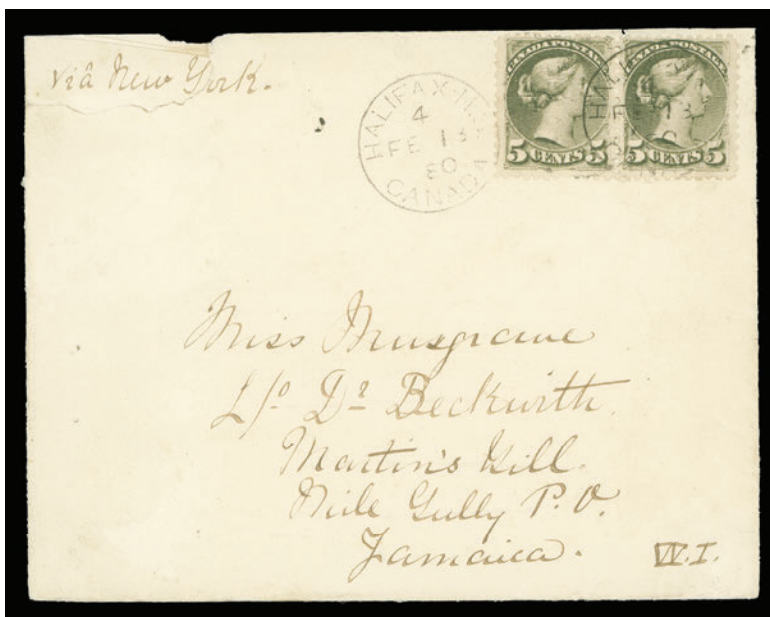 Viâ New York.
HALIFAX N.S.
4
FE 13
80
CANADA
CANADA POSTAGE
5 CENTS 5
CANADA POSTAGE
5 CENTS 5
HALIFAX
FE 13
Miss Musgrave
Dr Beckwith.
Martin's Hill.
Mile Gully P.O.
Jamaica.
W.I.